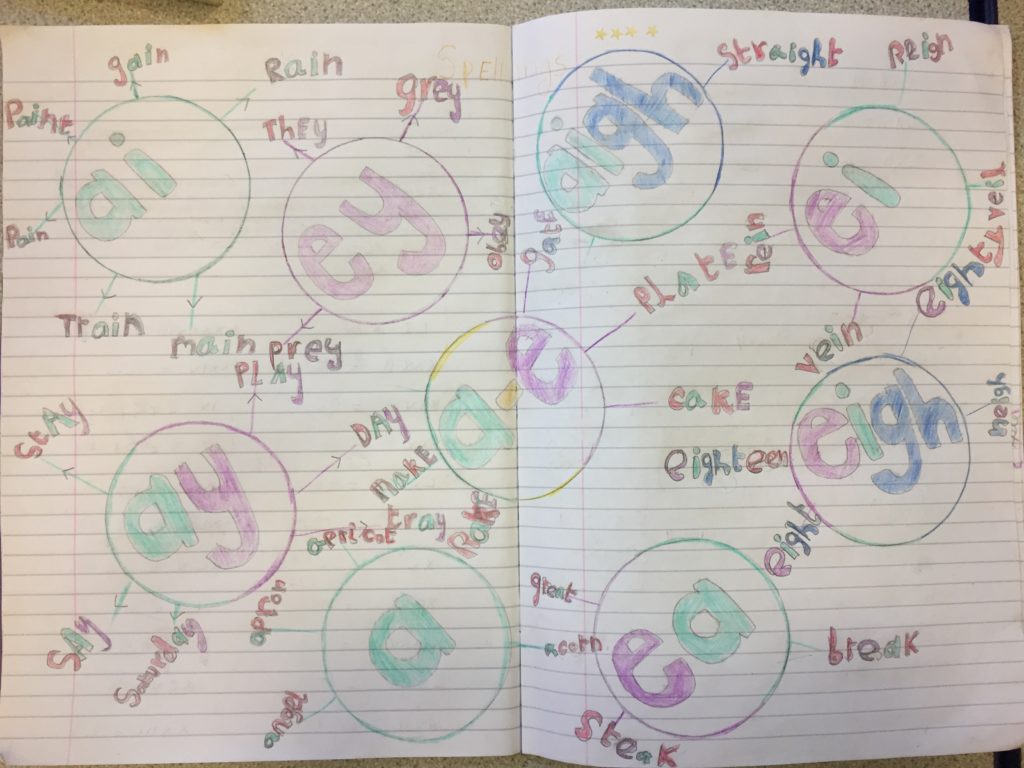 Spellings
ai
gain
Rain
Paint
Pain
Train
main
ey
They
grey
obey
prey
aigh
straight
ei
Reign
veil
rein
vein
a-e
gate
PLatE
cakE
makE
RakE
ay
PLAy
DAy
stAy
tray
SAy
Saturday
eigh
eighty
neigh
eighteen
eight
a
apricot
apron
angel
acorn
ea
great
break
steak